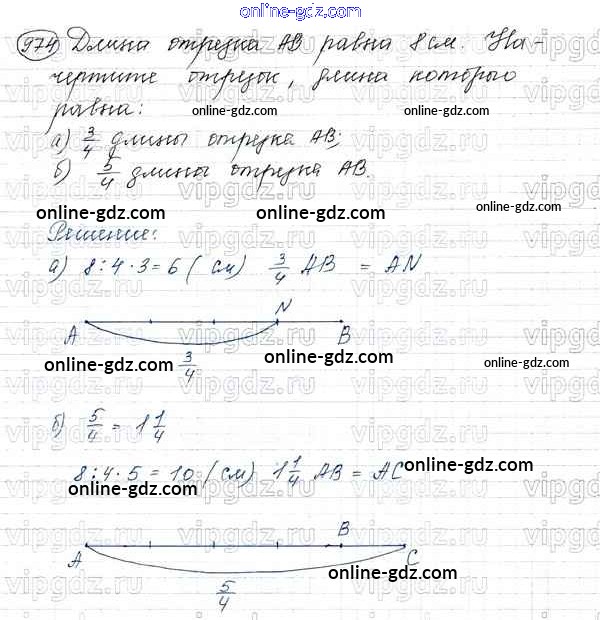 online-gdz.com
974) Длина отрезка АВ равна 8 см. На-
чертите отрезок, длина которого
равна:
online-gdz.com online-gdz.com
а) 3/4 длины отрезка АВ;
б) 5/4 длины отрезка АВ.
online-gdz.com online-gdz.com
Решение:
online-gdz.com
а) 8 : 4 · 3 = 6 ( см) 3/4 АВ = AN
N
A B
online-gdz.com online-gdz.com online-gdz.com
3/4
б) 5/4 = 1 1/4
8 : 4 · 5 = 10 ( см) 1 1/4 АВ = АС
online-gdz.com
online-gdz.com
B
A C
online-gdz.com
5/4
online-gdz.com
vipgdz.ru